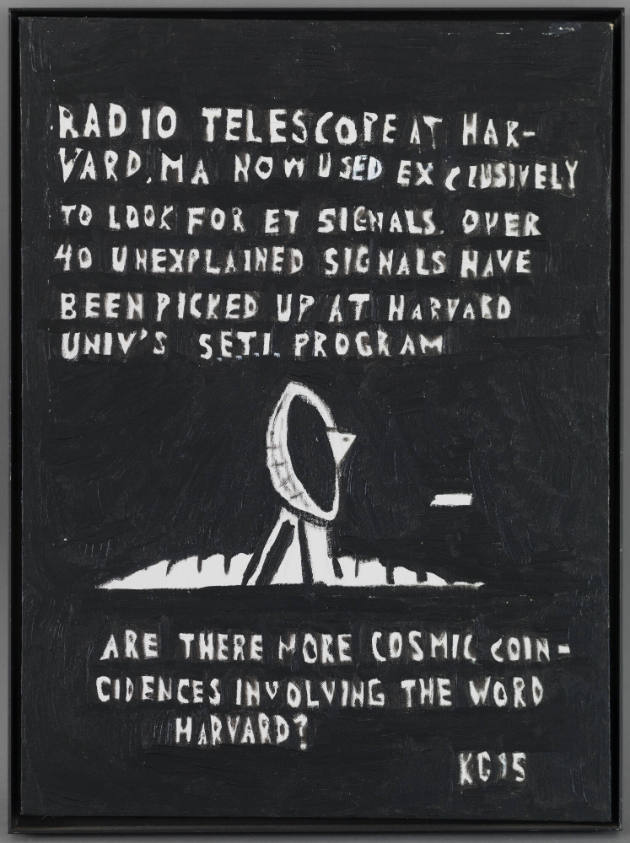 RADIO TELESCOPE AT HAR-
VARD, MA NOW USED EXCLUSIVELY
TO LOOK FOR ET SIGNALS. OVER
40 UNEXPLAINED SIGNALS HAVE
BEEN PICKED UP AT HARVARD
UNIV'S S.E.T.I. PROGRAM
ARE THERE MORE COSMIC COIN-
CIDENCES INVOLVING THE WORD
HARVARD?
KG 95